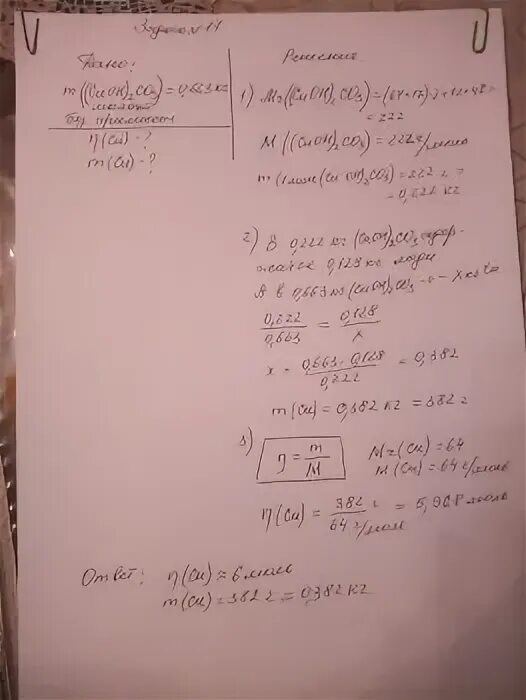 Задача № 14
Дано:
m((CuOH)₂CO₃) = 0,663 кг
малахит
без примесей
η(Cu) - ?
m(Cu) - ?
Решение
1) Mr((CuOH)₂CO₃) = (64+17)·2+12+48 =
= 222
M((CuOH)₂CO₃) = 222 г/моль
m(1 моль (CuOH)₂CO₃) = 222 г =
= 0,222 кг
2) В 0,222 кг (CuOH)₂CO₃ содер-
жатся 0,128 кг меди
А в 0,663 кг (CuOH)₂CO₃ -"- x кг Cu
0,222/0,663 = 0,128/x
x = 0,663·0,128/0,222 = 0,382
m(Cu) = 0,382 кг = 382 г
3) η = m/M
Mr(Cu) = 64
M(Cu) = 64 г/моль
η(Cu) = 382 г/64 г/моль = 5,968 моль
Ответ: η(Cu) ≈ 6 моль
m(Cu) = 382 г = 0,382 кг